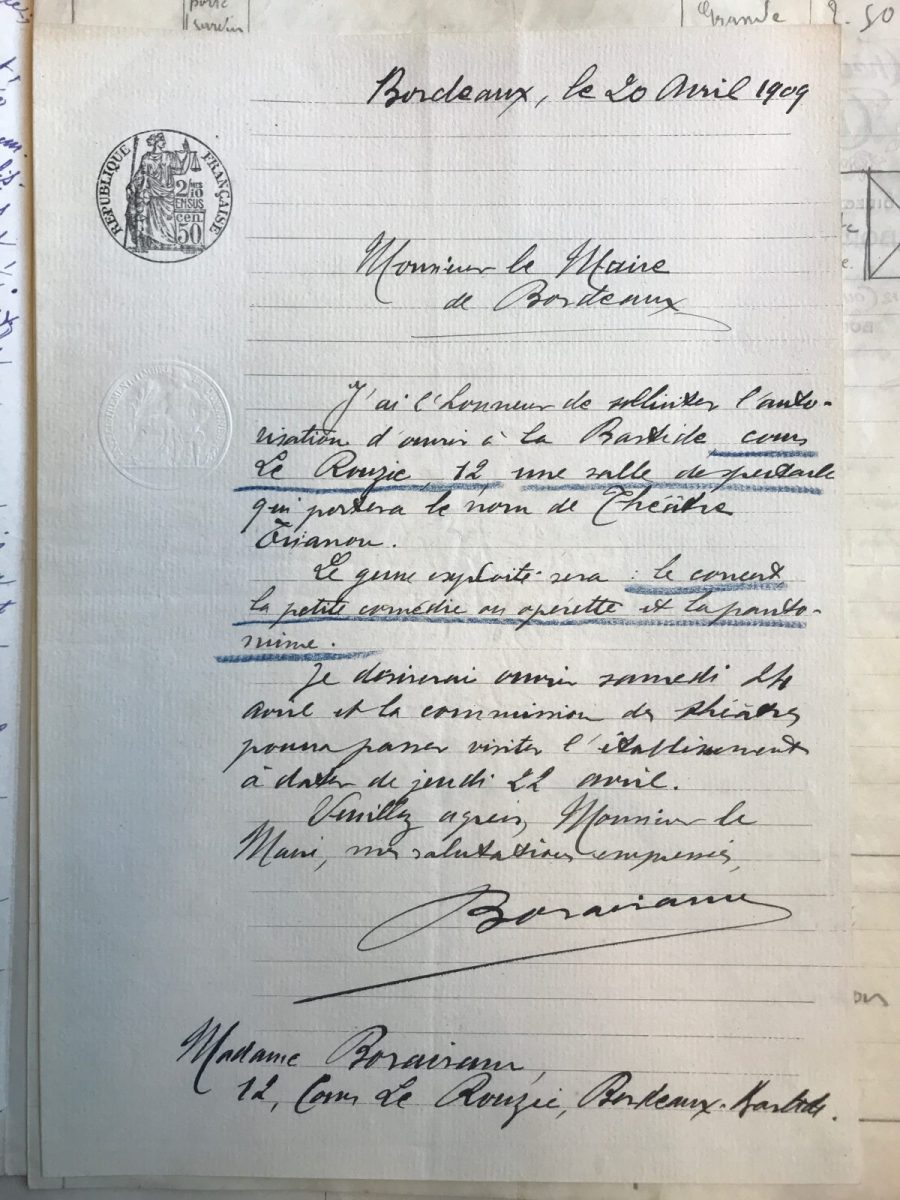 porte
Grande
2. 50
Bordeaux, le 20 Avril 1909
RÉPUBLIQUE FRANÇAISE
2/10
EN SUS
cen.
50
Monsieur le Maire
de Bordeaux
J'ai l'honneur de solliciter l'auto-
risation d'ouvrir à la Bastide cours
Le Rouzic, 12 une salle de spectacle
qui portera le nom de Théâtre
Trianon.
Le genre exploité sera : le concert
la petite comédie ou opérette et la panto-
mime.
Je désirerai ouvrir samedi 24
avril et la commission des théâtres
pourra passer visiter l'établissement
à dater de jeudi 22 avril.
Veuillez agréer, Monsieur le
Maire, mes salutations empressées,
Madame
12, Cours Le Rouzic, Bordeaux-Bastide.